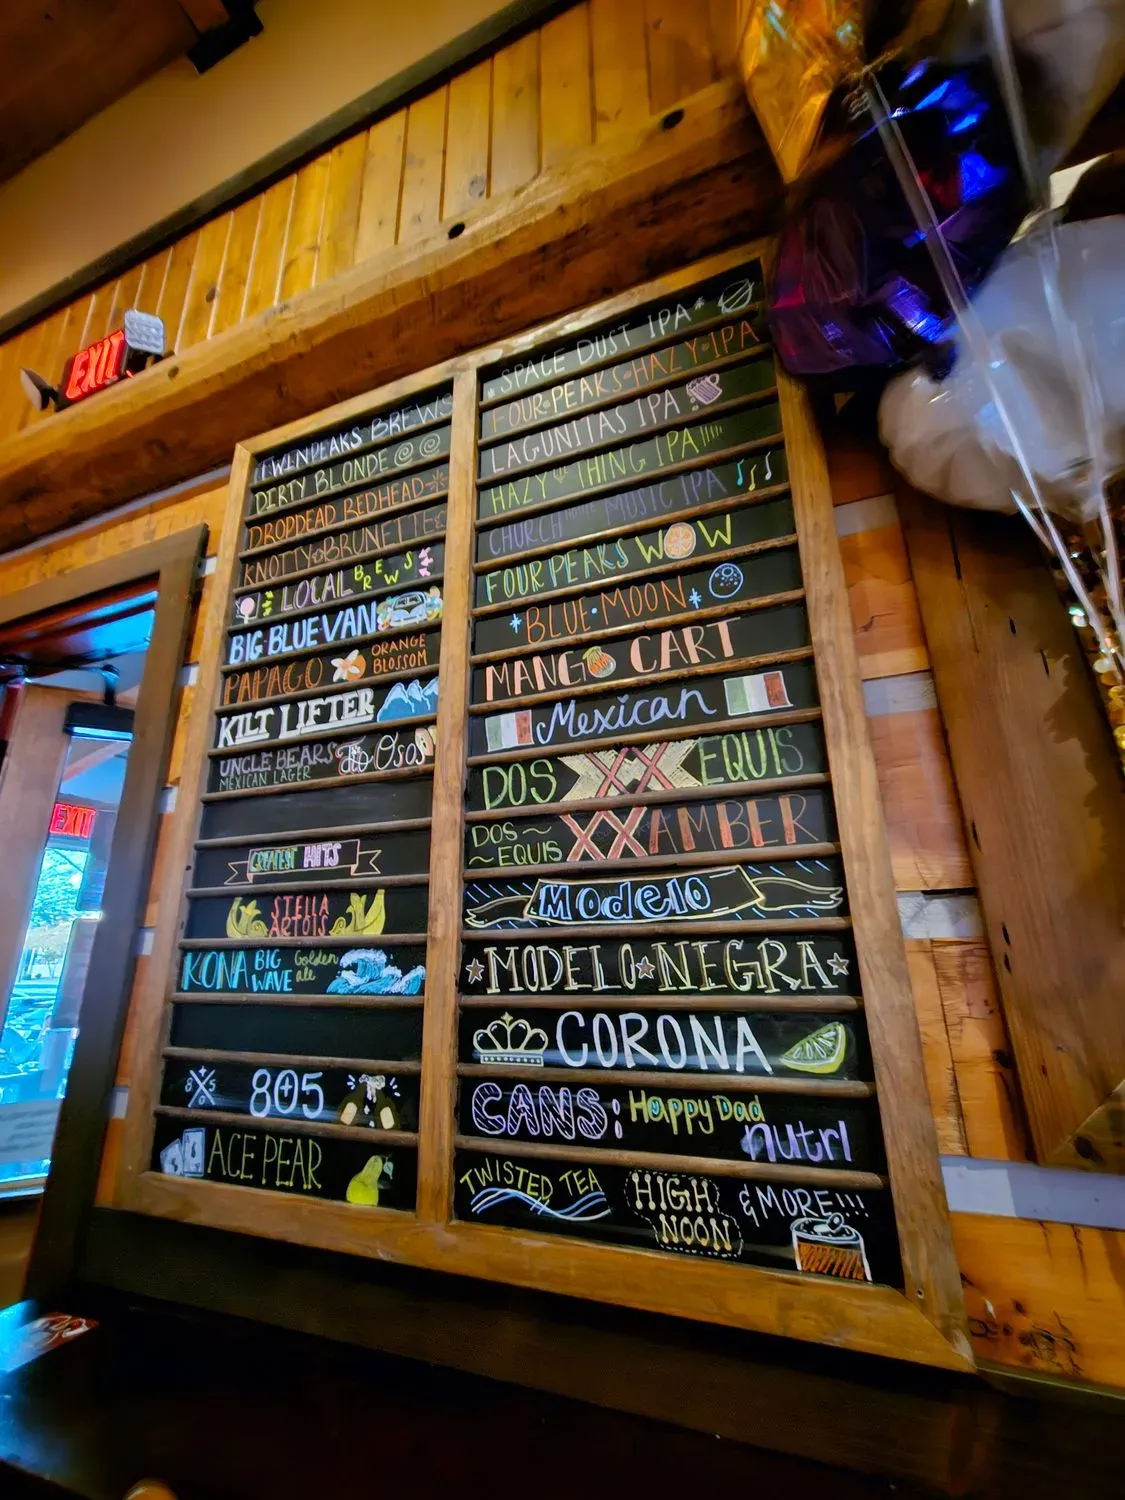 EXIT
TWINPEAKS BREWS
DIRTY BLONDE
DROPDEAD REDHEAD
KNOTTY BRUNETTE
LOCAL BREWS
BIG BLUE VAN
PAPAGO ORANGE BLOSSOM
KILT LIFTER
UNCLE BEARS MEXICAN LAGER Tio Oso
GREATEST HITS
STELLA ARTOIS
KONA BIG WAVE Golden ale
805 805
ACE PEAR
SPACE DUST IPA
FOUR PEAKS HAZY IPA
LAGUNITAS IPA
HAZY THING IPA
CHURCH MUSIC IPA
FOUR PEAKS WOW
BLUE MOON
MANGO CART
Mexican
DOS XX EQUIS
DOS EQUIS XX AMBER
Modelo
MODELO NEGRA
CORONA
CANS: Happy Dad nutrl
TWISTED TEA HIGH NOON & MORE!!!
EXIT